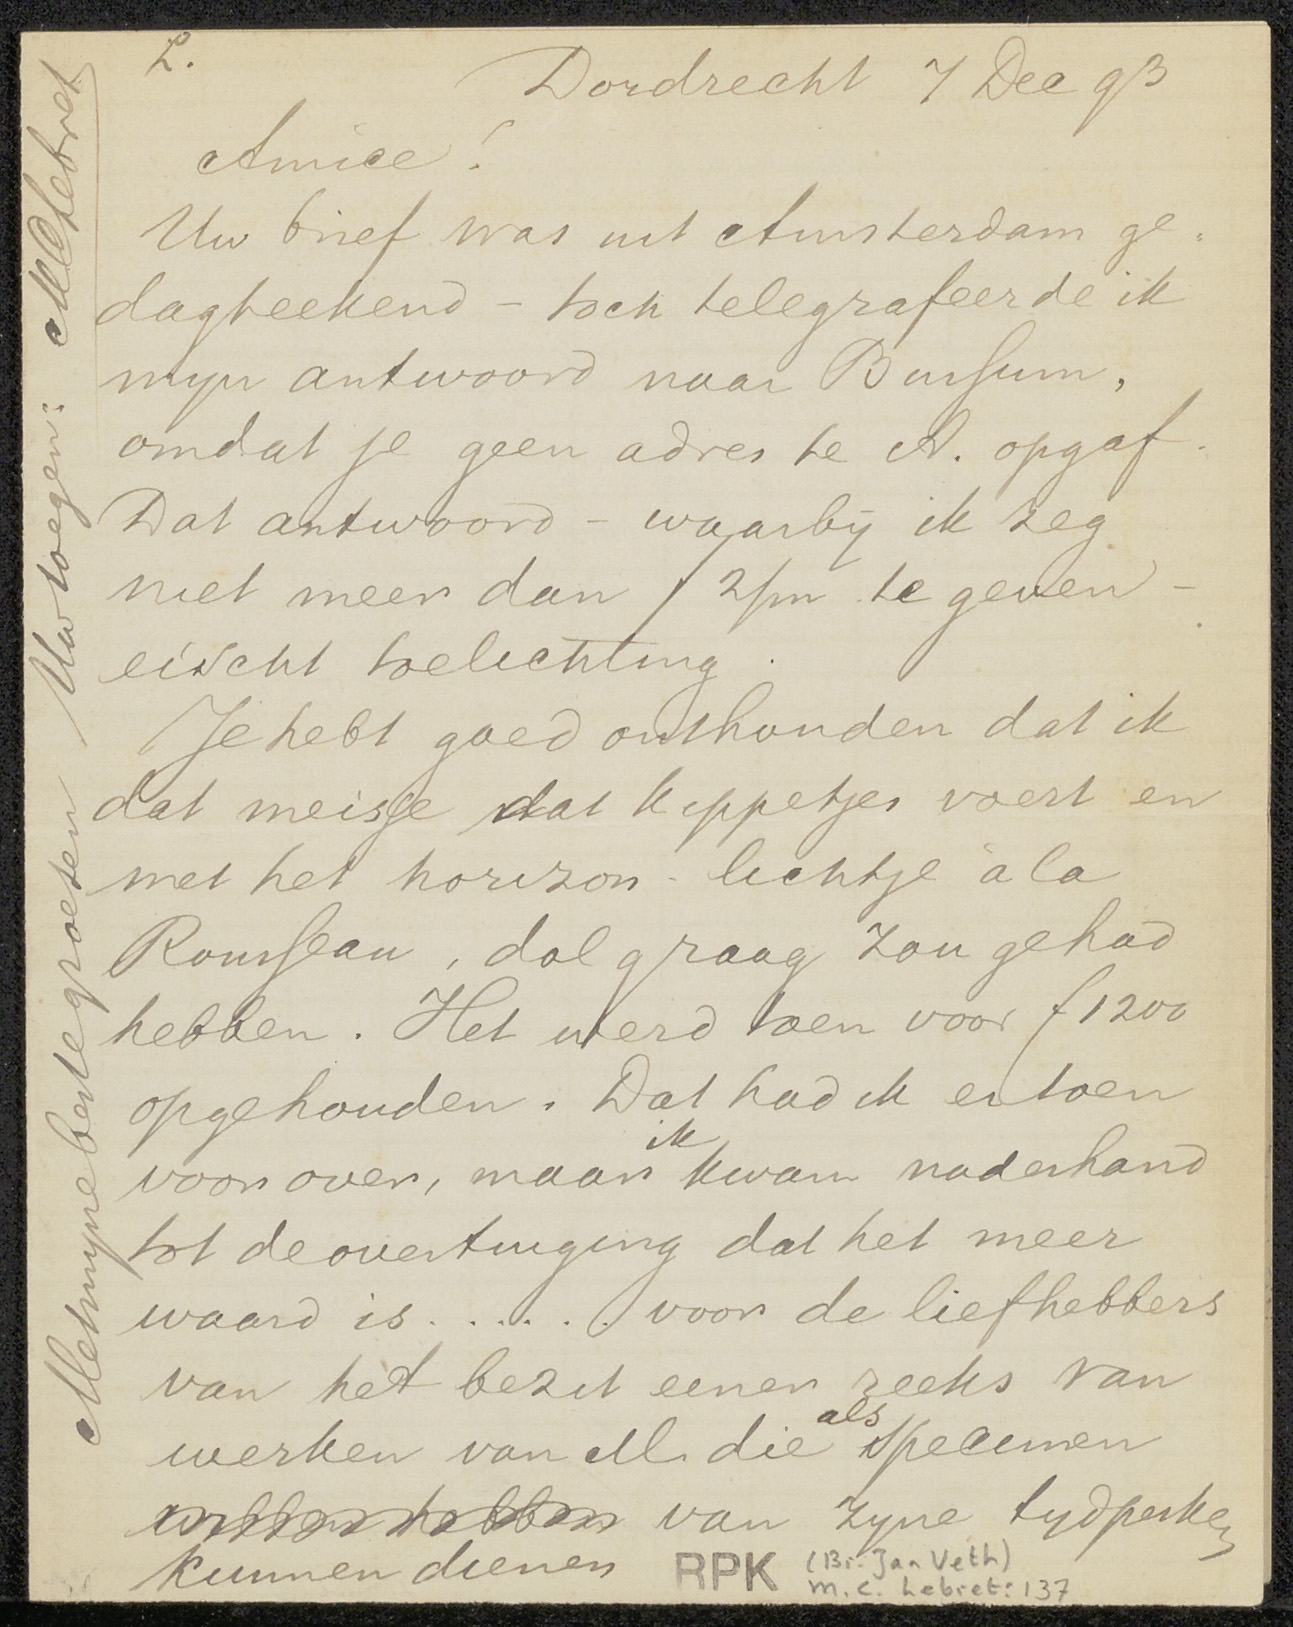 L.
Dordrecht 7 Dec 93
Amice!
Uw brief was uit Amsterdam ge-
dagteekend – toch telegrafeerde ik
mijn antwoord naar Bussum,
omdat je geen adres te A. opgaf.
Dat antwoord – waarbij ik zeg
niet meer dan f 2/m te geven –
eischt toelichting.
Je hebt goed onthouden dat ik
dat meisje dat kippetjes voert en
met het horizon-lichtje à la
Rousseau, dolgraag zou gehad
hebben. Het werd toen voor f 1200
opgehouden. Dat had ik er toen
voor over, maar ik kwam naderhand
tot de overtuiging dat het meer
waard is . . . . . . voor de liefhebbers
van het bezit eener reeks van
werken van M. die als specimen
willen hebben van zyne tydperken
kunnen dienen
Met myne beste groeten Uw toegen: MCLebret
RPK
(Br. Jan Veth)
M.C. Lebret: 137